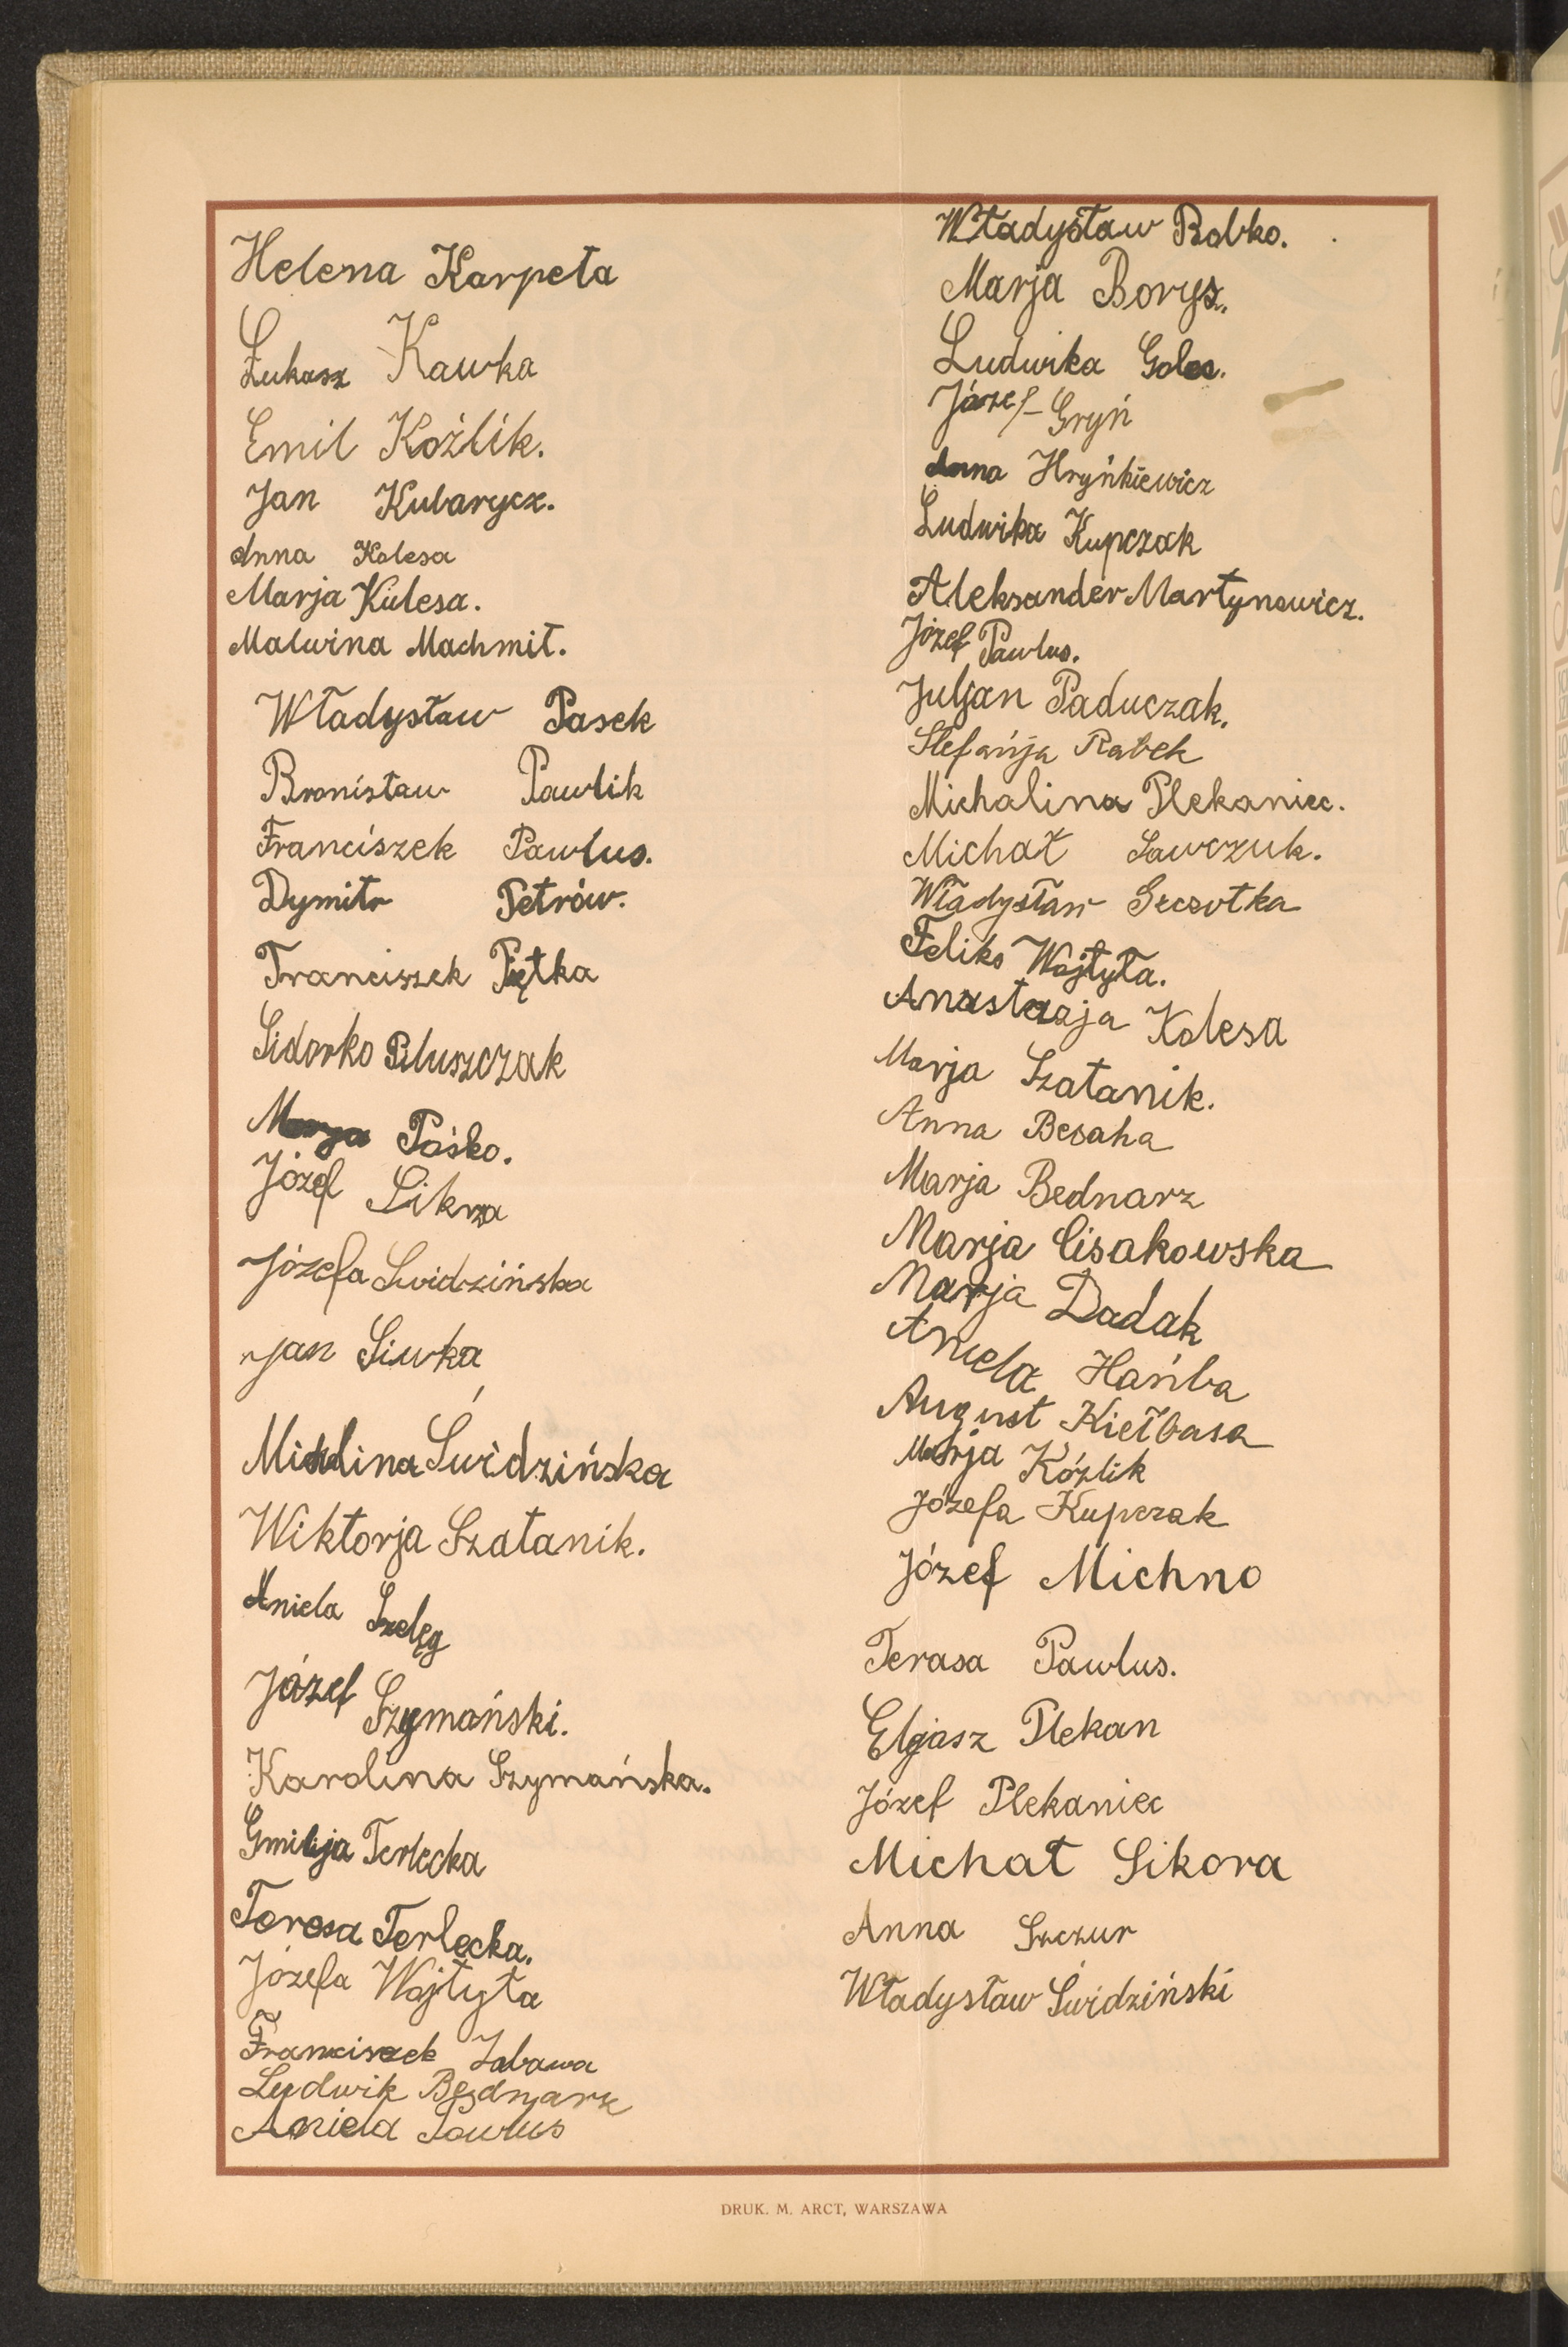 Helena Karpeta
Łukasz Kawka
Emil Koźlik.
Jan Kubarycz.
Anna Kolesa
Marja Kulesa.
Malwina Machmit.
Władysław Pasek
Bronisław Pawlik
Franciszek Pawlus.
Dymitr Petrów.
Franciszek Piętka
Sidorko Piluszczak
Marja Pośko.
Józef Sikora
Józefa Swidzińska
Jan Siwka
Michalina Świdzińska
Wiktorja Szatanik.
Aniela Szeląg
Józef Szymański.
Karolina Szymańska.
Emilja Terlecka
Teresa Terlecka.
Józefa Wojtyła
Franciszek Zabawa
Ludwik Bednarz
Aniela Pawlus
Władysław Bobko.
Marja Borys.
Ludwika Golec.
Józef Gryń
Anna Hryńkiewicz
Ludwika Kupczak
Aleksander Martynowicz.
Józef Pawlus.
Juljan Paduczak.
Stefańja Ratek
Michalina Plekaniec.
Michał Sawczuk.
Władysław Szczotka
Feliks Wojtyła.
Anastazja Kolesa
Marja Szatanik.
Anna Besaha
Marja Bednarz
Marja Cisakowska
Marja Dadak
Aniela Hańba
August Kiełbasa
Marja Kóźlik
Józefa Kupczak
Józef Michno
Terasa Pawlus.
Eljasz Plekan
Józef Plekaniec
Michał Sikora
Anna Szczur
Władysław Świdziński
DRUK. M. ARCT, WARSZAWA